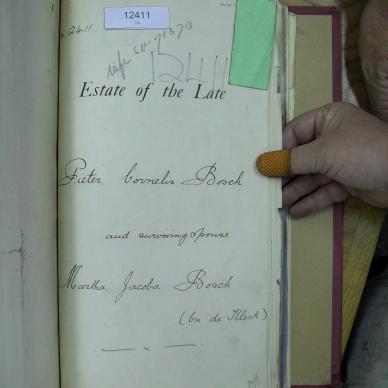 12411
12411
12411
Estate of the Late
Pieter Cornelis Bosch
and surviving spouse
Martha Jacoba Bosch
(bn de Klerk)